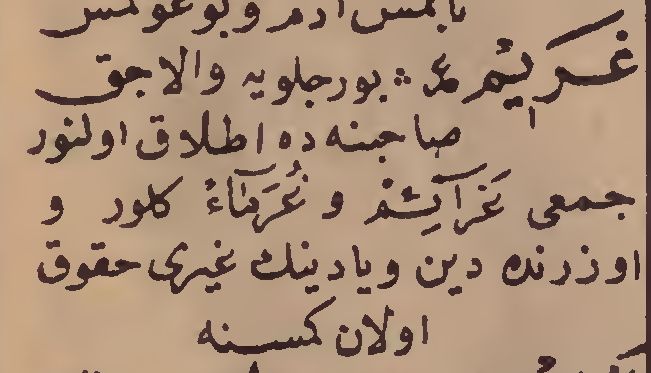 یاپلمش ادم و بوغولمش
غَرِيمٌ ع ؞ بورجلویه والاجق
صاحبنه ده اطلاق اولنور
جمعی غَرَائِمُ و غُرَمَاءُ کلور و
اوزرنده دین و یا دینك غیری حقوق
اولان کمسنه